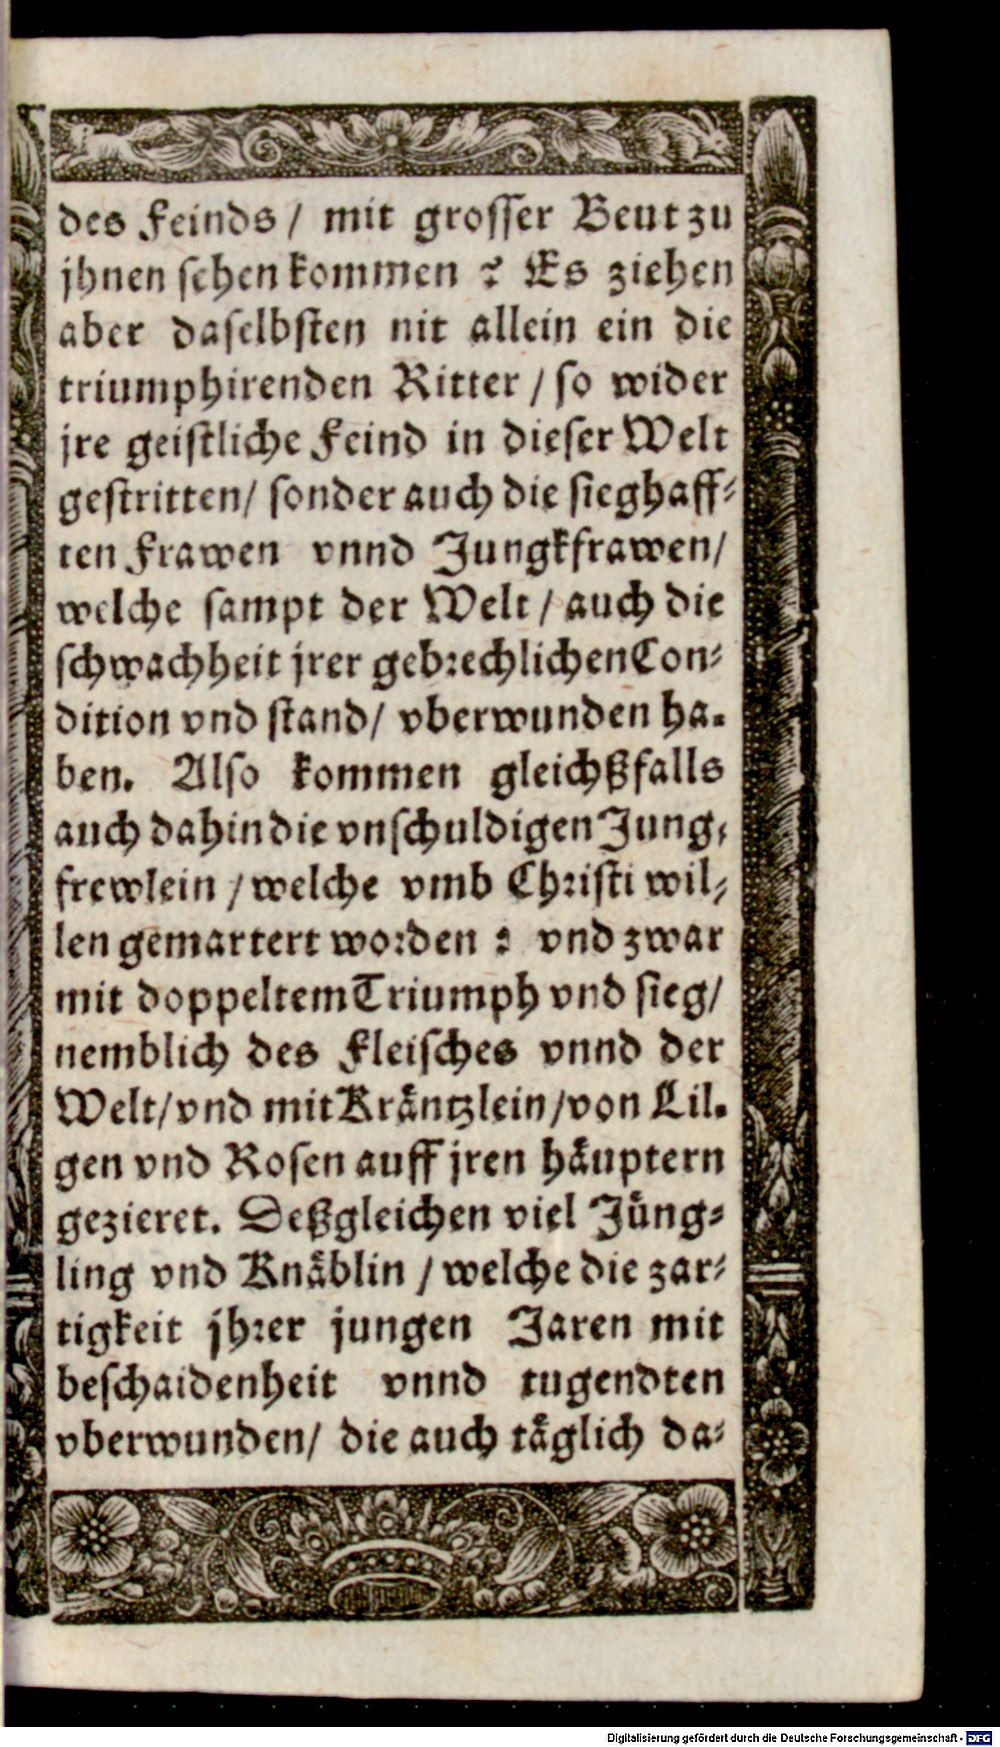 des Feinds / mit grosser Beut zu
jhnen sehen kommen ? Es ziehen
aber daselbsten nit allein ein die
triumphirenden Ritter / so wider
jre geistliche Feind in dieser Welt
gestritten / sonder auch die sieghaff-
ten Frawen vnnd Jungkfrawen /
welche sampt der Welt / auch die
schwachheit jrer gebrechlichen Con-
dition vnd stand / vberwunden ha-
ben. Also kommen gleichßfalls
auch dahin die vnschuldigen Jung-
frewlein / welche vmb Christi wil-
len gemartert worden : vnd zwar
mit doppeltem Triumph vnd sieg /
nemblich des Fleisches vnnd der
Welt / vnd mit Kräntzlein / von Lil-
gen vnd Rosen auff jren häuptern
gezieret. Deßgleichen viel Jüng-
ling vnd Knäblin / welche die zar-
tigkeit jhrer jungen Jaren mit
beschaidenheit vnnd tugendten
vberwunden / die auch täglich da-
Digitalisierung gefördert durch die Deutsche Forschungsgemeinschaft - DFG